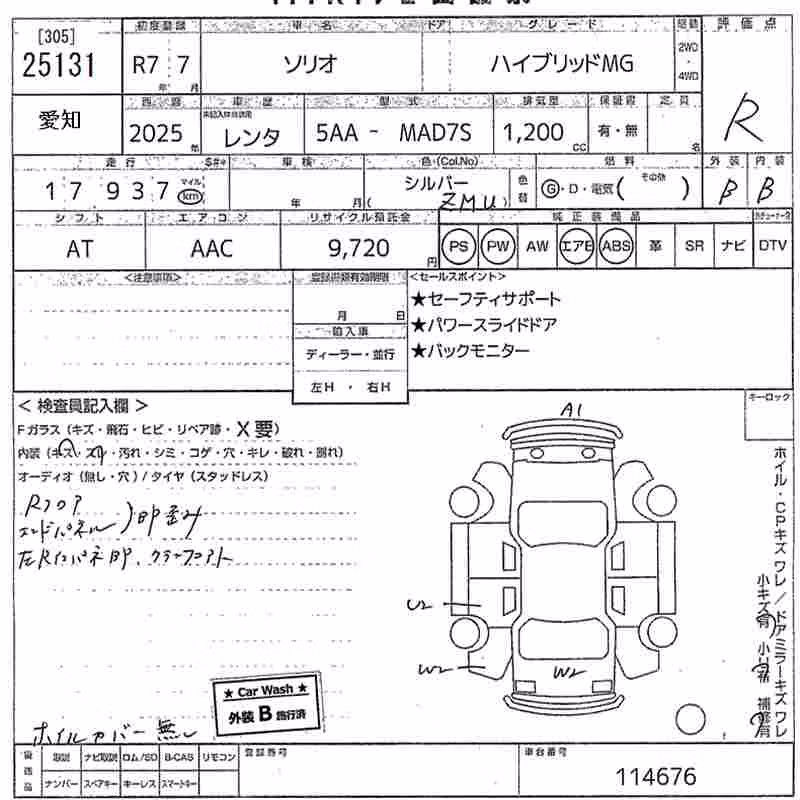 [305]
25131
初度登録 車名 ドア グレード 駆動 評価点
R7 7 年 月 ソリオ ハイブリッドMG 2WD・4WD R
愛知
西暦 車歴 型式 排気量 保証書 定員
2025 年 未記入は自家用 レンタ 5AA - MAD7S 1,200 cc 有・無 名
走行 車検 色(Col.No) 燃料 外装 内装
17 937 マイル km 年 月( シルバー ZMU 色替 G・D・電気( その他 ) B B
シフト エアコン リサイクル預託金 純正装備品
AT AAC 9,720 円 PS PW AW エアB ABS 革 SR ナビ DTV
<注意事項> 登録書類有効期限 <セールスポイント>
月 日
輸入車
ディーラー・並行
左H ・ 右H
★セーフティサポート
★パワースライドドア
★バックモニター
キーロック
< 検査員記入欄 >
Fガラス(キズ・飛石・ヒビ・リペア跡・X要)
内装(キズ・スリ・汚れ・シミ・コゲ・穴・キレ・破れ・割れ)
オーディオ(無し・穴)/タイヤ(スタッドレス)
Rフロア
エンドパネル )凹歪み
左Rインパネ凹
A1
U2
W2
W2
ホイル・CPキズ ワレ/ドアミラーキズ ワレ
小キズ有 小凹有 補修有
★ Car Wash ★
外装 B 施行済
ホイルカバー無し
取説 ナビ取説 ロム/SD B-CAS リモコン
ナンバー スペアキー キーレス スマートキー
登録番号
車台番号
114676